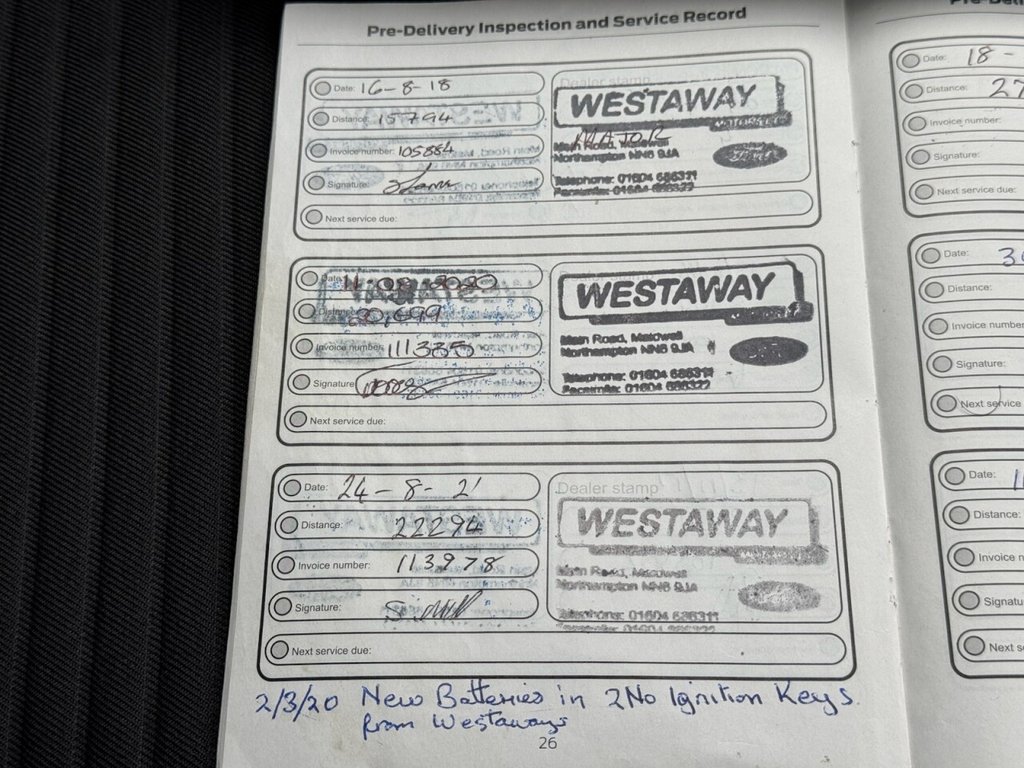 Pre-Delivery Inspection and Service Record
Date: 16-8-18
Distance: 15794
Invoice number: 105884
Signature:
Next service due:
Dealer stamp
WESTAWAY
MOTORS
MAJOR
Main Road,
Northampton NN6 9JA
Telephone: 01604 686311
Facsimile: 01604 686322
Ford
Date: 11.09.2020
Distance: 20,699
Invoice number: 111335
Signature:
Next service due:
WESTAWAY
Main Road, Maidwell
Northampton NN6 9JA
Telephone: 01604 686311
Facsimile: 01604 686322
Date: 24-8-21
Distance: 22294
Invoice number: 113978
Signature:
Next service due:
Dealer stamp
WESTAWAY
Main Road, Maidwell
Northampton NN6 9JA
Telephone: 01604 686311
2/3/20 New Batteries in 2No Ignition Keys.
from Westaways
26
Date: 18-
Distance: 27
Invoice number:
Signature:
Next service due:
Date: 30
Distance:
Invoice number
Signature:
Next service
Date:
Distance:
Invoice n
Signatu
Next s